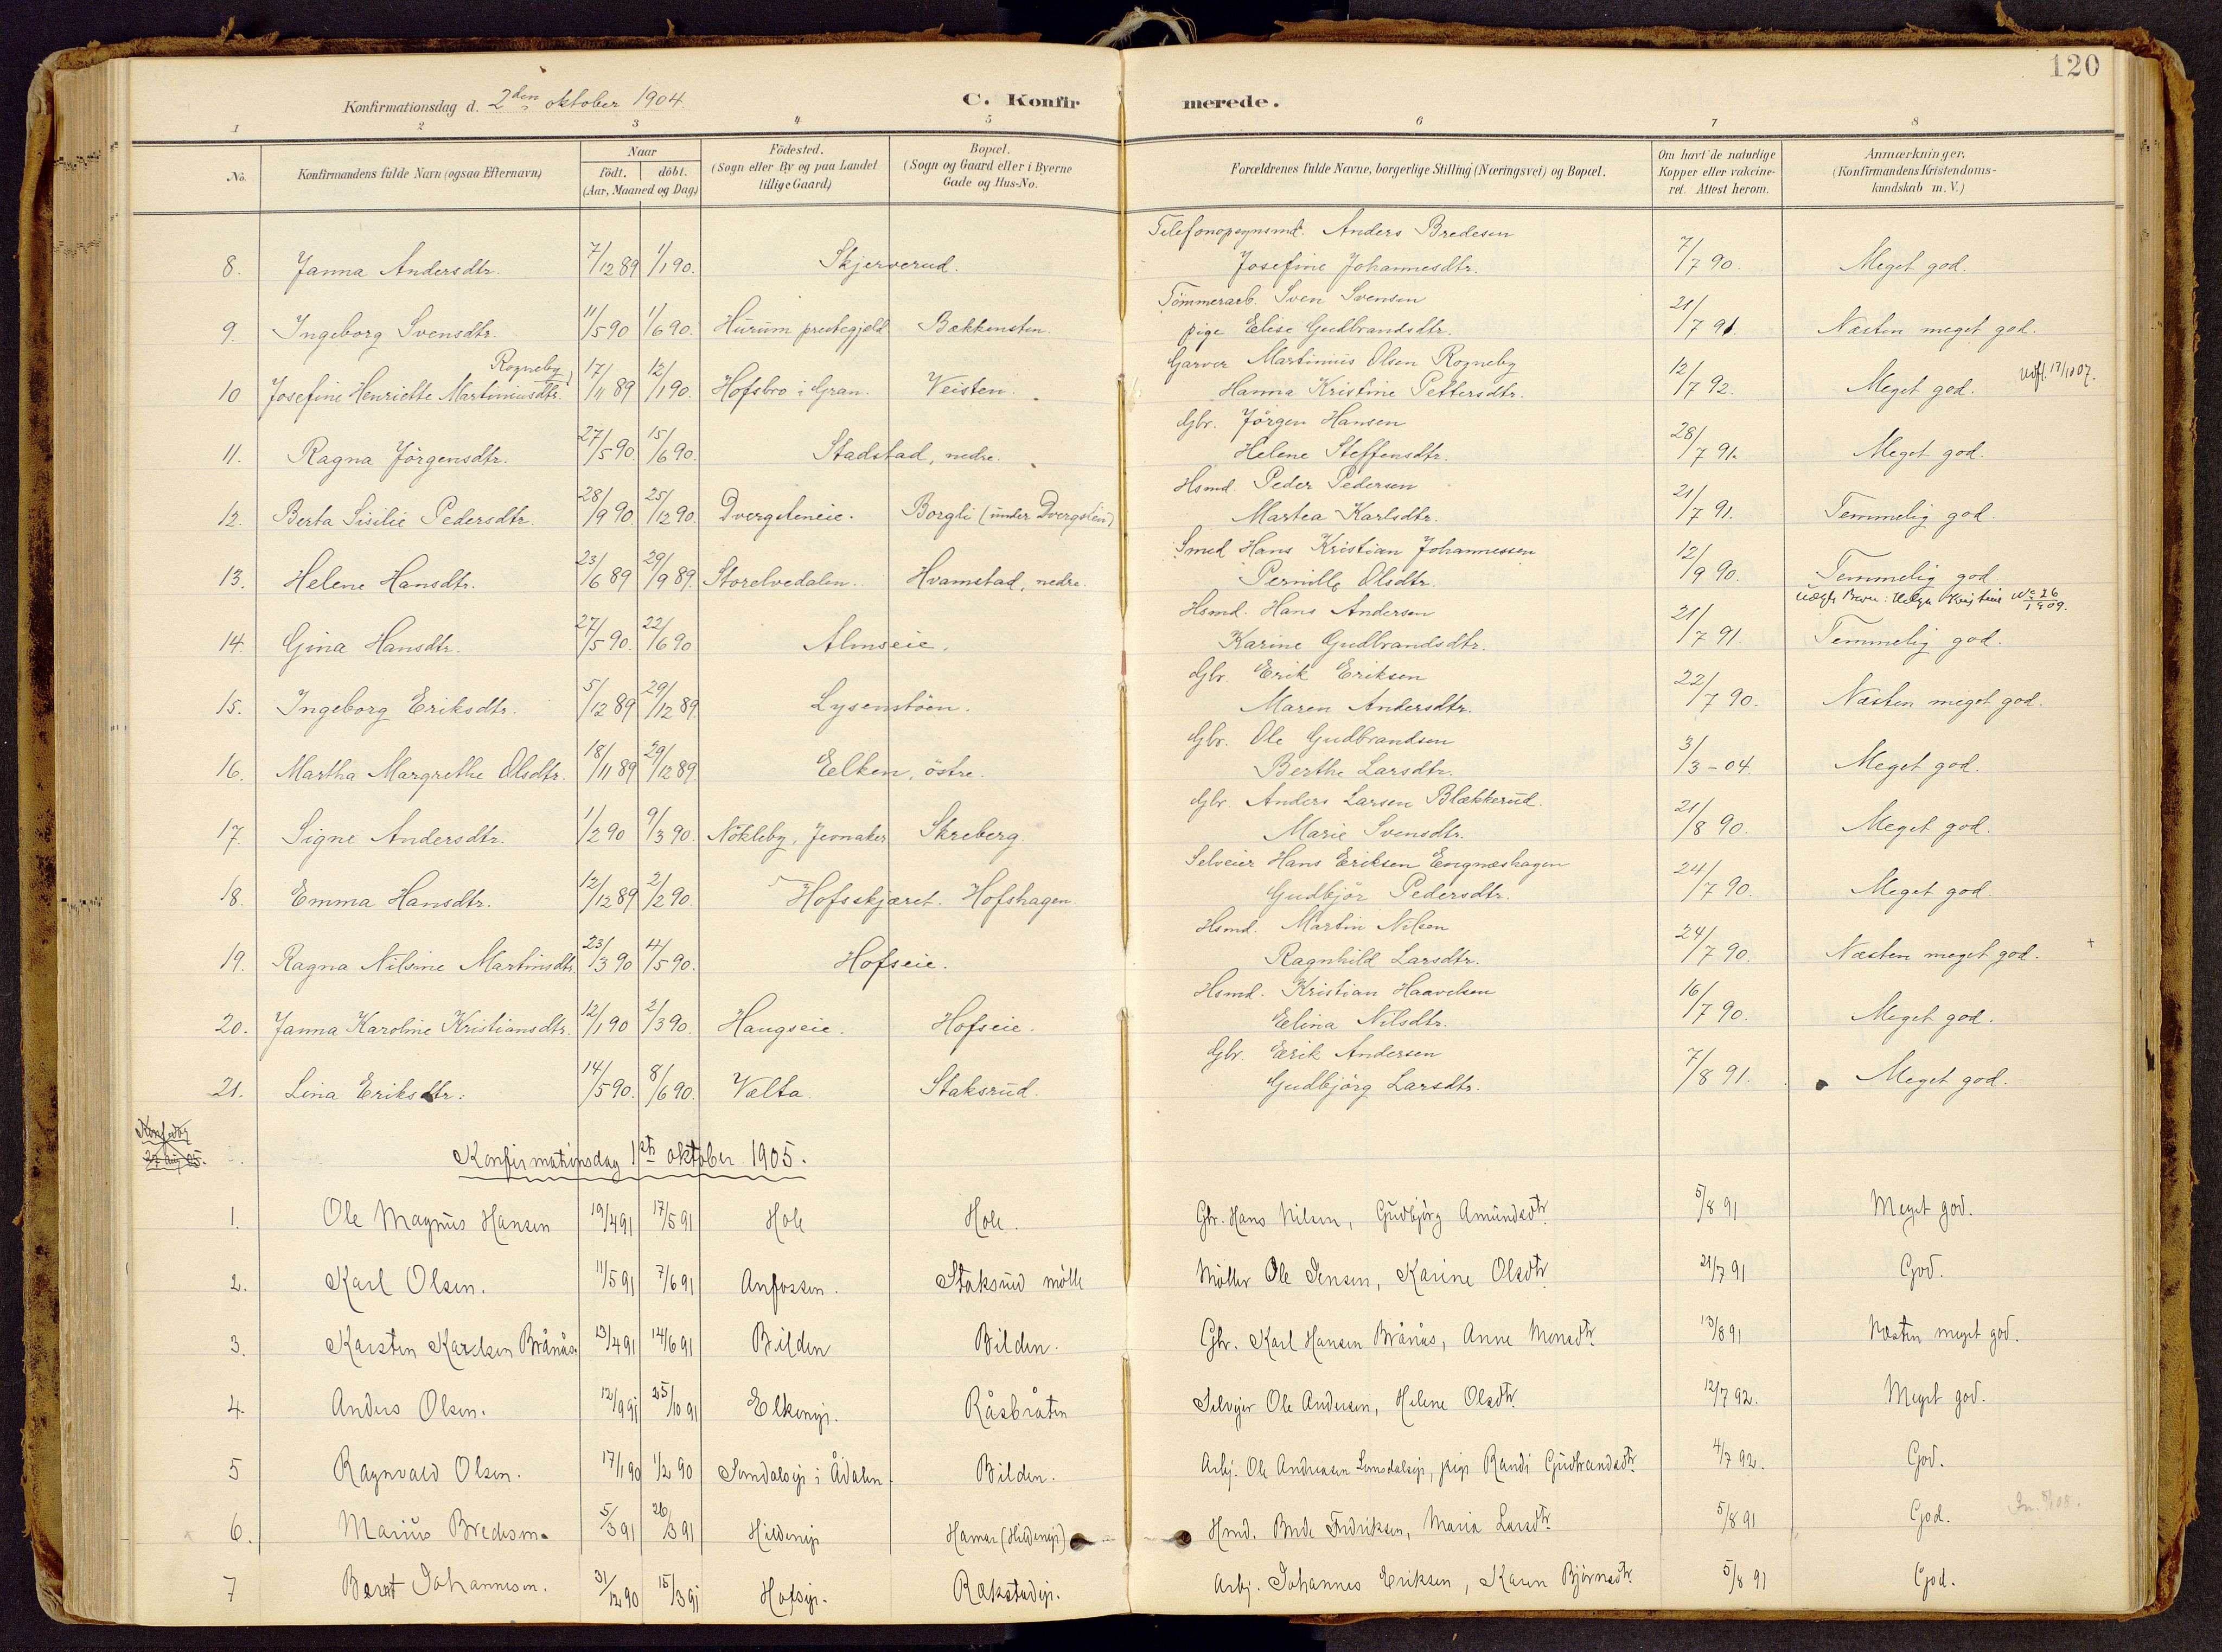 120
Konfirmationsdag d. 2den oktober 1904.
C. Konfir merede.
1 2 3 4 5 6 7 8
No.
Konfirmandens fulde Navn (ogsaa Efternavn)
Naar
født. døbt.
(Aar, Maaned og Dag)
Födested.
(Sogn eller By og paa Landet
tillige Gaard)
Bopæl.
(Sogn og Gaard eller i Byerne
Gade og Hus-No.
Forældrenes fulde Navne, borgerlige Stilling (Næringsvei) og Bopæl.
Om havt de naturlige
Kopper eller vakcine-
ret. Attest herom.
Anmærkninger.
(Konfirmandens Kristendoms-
kundskab m. V.)
Telefonopsynsmd. Anders Bredesen
8. Janna Andersdtr. 7/12 89 1/1 90. Skjerverud. Josefine Johannesdtr. 7/7 90. Meget god.
Tömmerarb. Sven Svensen
9. Ingeborg Svensdtr. 11/5 90 1/6 90. Hurum prestegjeld Bækkensten. pige Elise Gudbrandsdtr. 21/7 91. Næsten meget god.
Rogneby Garver Martinius Olsen Rogneby
10 Josefine Henriette Martiniusdtr. 17/11 89 12/1 90. Hofsbro i Gran. Veisten. Hanna Kristine Pettersdtr. 12/7 92. Meget god. Udfl. 17/10 07.
Gbr. Jörgen Hansen
11. Ragna Jörgensdtr. 27/5 90. 15/6 90. Stadstad, nedre. Helene Steffensdtr. 28/7 91. Meget god.
Hsmd. Peder Pedersen
12. Berta Sisilie Pedersdtr. 28/9 90 25/12 90. Dvergsteneie. Borgli (under Dvergsten) Martea Karlsdtr. 21/7 91. Temmelig god.
Smed Hans Kristian Johannessen
13. Helene Hansdtr. 23/6 89 29/9 89. Storelvedalen. Hvamstad, nedre. Pernille Olsdtr. 12/9 90. Temmelig god
Uægte Barn: Helga Kristine No 26 1909.
Hsmd. Hans Andersen
14. Gina Hansdtr. 27/5 90. 22/6 90 Almseie. Karine Gudbrandsdtr. 21/7 91. Temmelig god.
Gbr. Erik Eriksen
15. Ingeborg Eriksdtr. 5/12 89 29/12 89. Lysenstöen. Maren Andersdtr. 22/7 90. Næsten meget god.
Gbr. Ole Gudbrandsen
16. Martha Margrethe Olsdtr. 18/11 89 29/12 89 Elken, östre. Berthe Larsdtr. 3/3 - 04. Meget god.
Gbr. Anders Larsen Blækkerud.
17. Signe Andersdtr. 1/2 90 9/3 90. Nökleby, Jevnaker Skreberg. Marie Svensdtr. 21/8 90. Meget god.
Selveier Hans Eriksen Engnæshagen
18. Emma Hansdtr. 12/12 89 2/2 90. Hofsskjæret. Hofshagen. Gudbjör Pedersdtr. 24/7 90. Meget god.
Hsmd. Martin Nilsen
19. Ragna Nilsine Martinsdtr. 23/3 90 4/5 90. Hofseie. Ragnhild Larsdtr. 24/7 90. Næsten meget god. +
Hsmd. Kristian Haavelsen
20. Janna Karoline Kristiansdtr. 12/1 90 2/3 90. Haugseie. Hofseie. Elina Nilsdtr. 16/7 90. Meget god.
Gbr. Erik Andersen
21. Lina Eriksdtr. 14/5 90. 8/6 90. Vælta. Staksrud. Gudbjörg Larsdtr. 7/8 91. Meget god.
27 aug 05.
Konfirmationsdag 1st oktober 1905.
1. Ole Magnus Hansen 19/4 91 17/5 91 Hole Hole. Gbr. Hans Nilsen, Gudbjørg Amundsdtr. 5/8 91 Meget god.
2. Karl Olsen. 11/5 91 7/6 91 Anfossen. Staksrud mölle Möller Ole Jensen, Karine Olsdtr. 21/7 91 God.
3. Karsten Karlsen Brånås. 13/4 91 14/6 91 Bilden Bilden. Gbr. Karl Hansen Brånås, Anne Monsdtr. 13/8 91 Næsten meget god.
4. Anders Olsen. 12/9 91 25/10 91 Elkenejr. Råsbråten Selvejer Ole Andersen, Helene Olsdtr. 12/7 92. Meget god.
5 Ragnvald Olsen. 17/1 90 1/2 90 Somdalseje i Ådalen Bilden. Arbj. Ole Andreasen Somdalseje, pige Randi Gudbrandsdtr. 4/7 92. God.
6. Marius Bredesen. 5/3 91 26/3 91 Hildeneje Hamar (Hildeneje) Hmd. Brede Fredriksen, Maria Larsdtr. 5/8 91 God.
7 Bernt Johannesen. 31/12 90 15/3 91 Hofseje. Rækstadeje. Arbj. Johannes Eriksen, Karen Björnsdtr. 5/8 91 God.